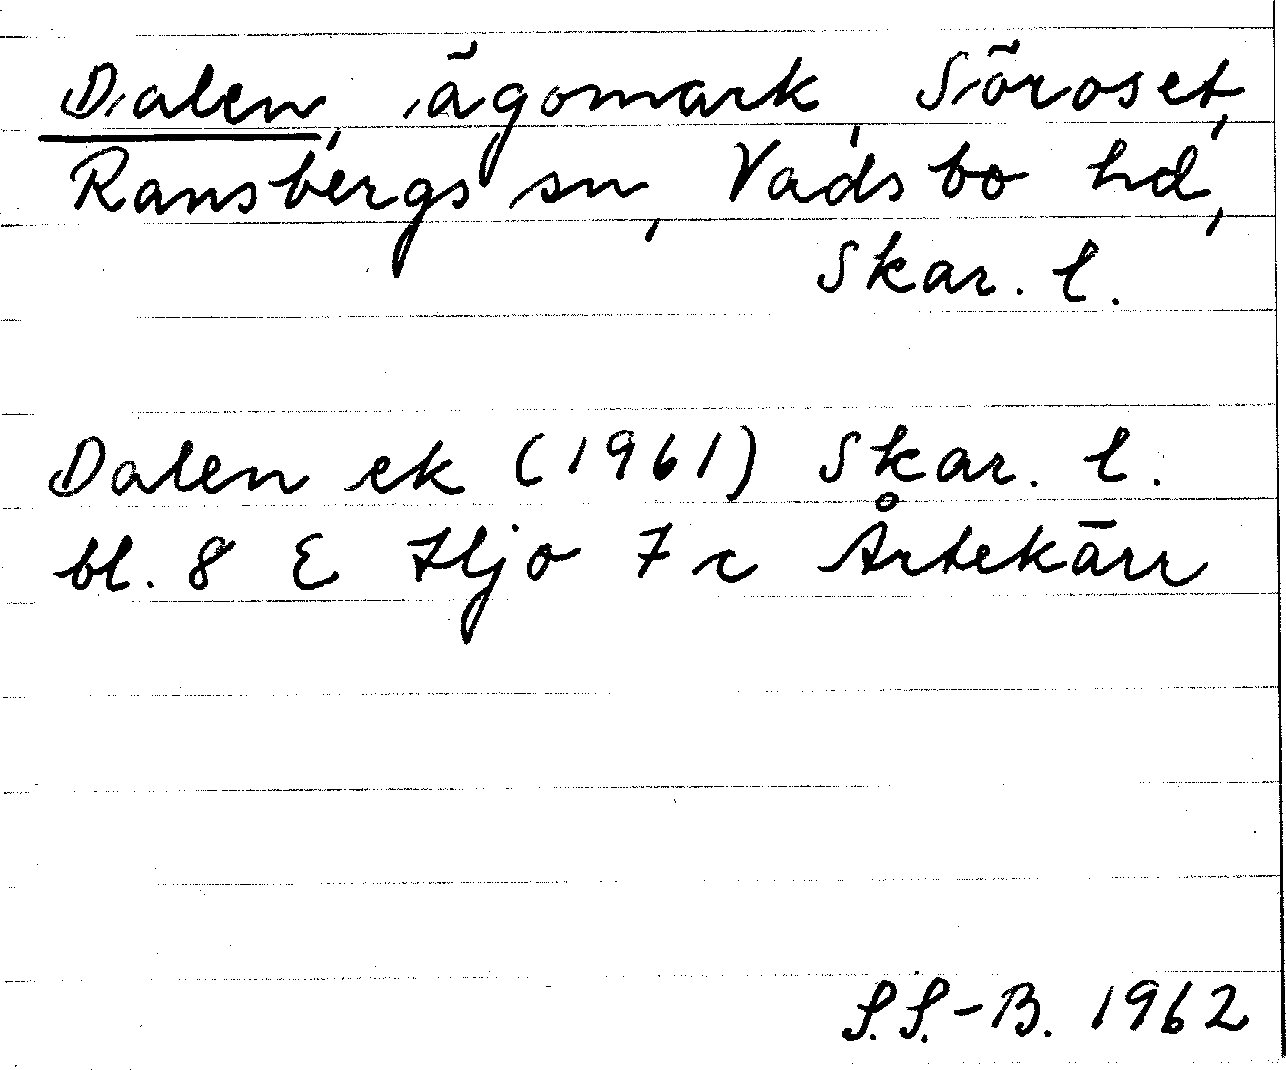 Dalen, ägomark, Söroset,
Ransbergs sn, Vadsbo hd,
Skar. l.
Dalen ek (1961) Skar. l.
bl. 8 E Hjo 7 c Årtekärr
S.S.-B. 1962